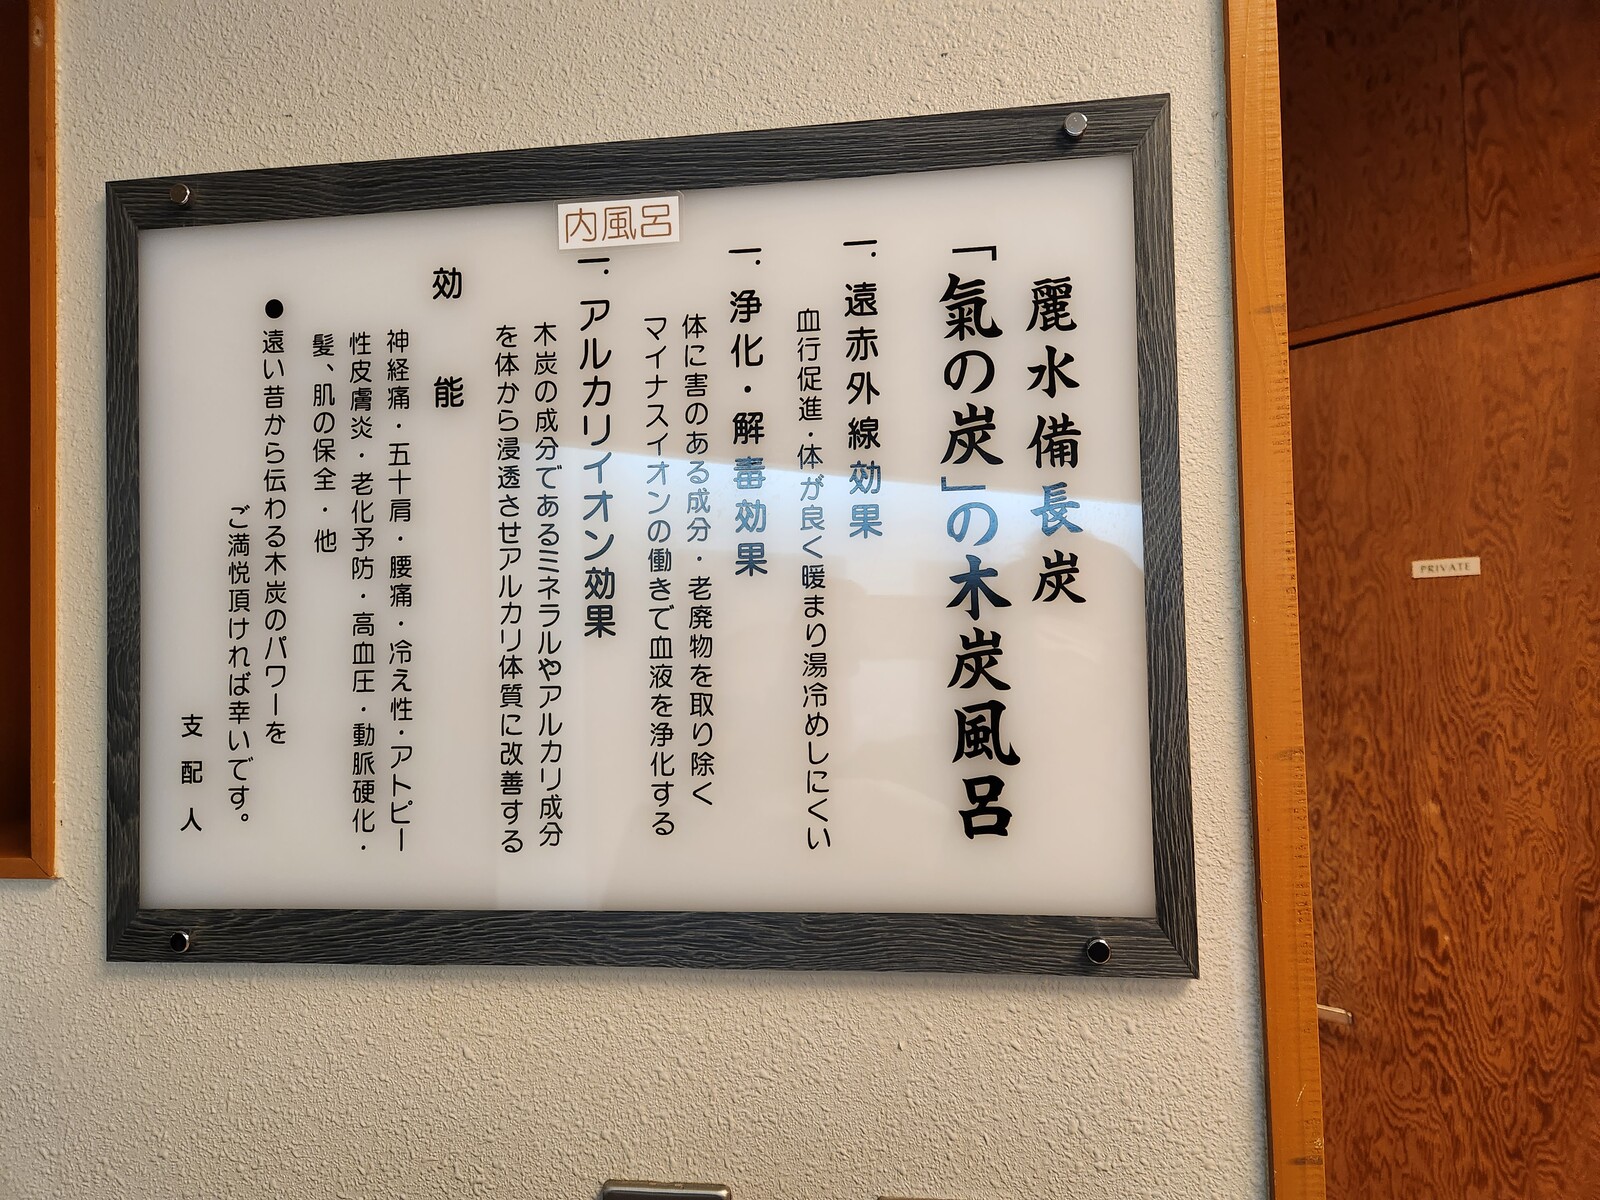 内風呂
麗水備長炭
「氣の炭」の木炭風呂
一. 遠赤外線効果
血行促進・体が良く暖まり湯冷めしにくい
一. 浄化・解毒効果
体に害のある成分・老廃物を取り除く
マイナスイオンの働きで血液を浄化する
一. アルカリイオン効果
木炭の成分であるミネラルやアルカリ成分
を体から浸透させアルカリ体質に改善する
効能
神経痛・五十肩・腰痛・冷え性・アトピー
性皮膚炎・老化予防・高血圧・動脈硬化・
髪、肌の保全・他
●遠い昔から伝わる木炭のパワーを
ご満悦頂ければ幸いです。
支配人
PRIVATE